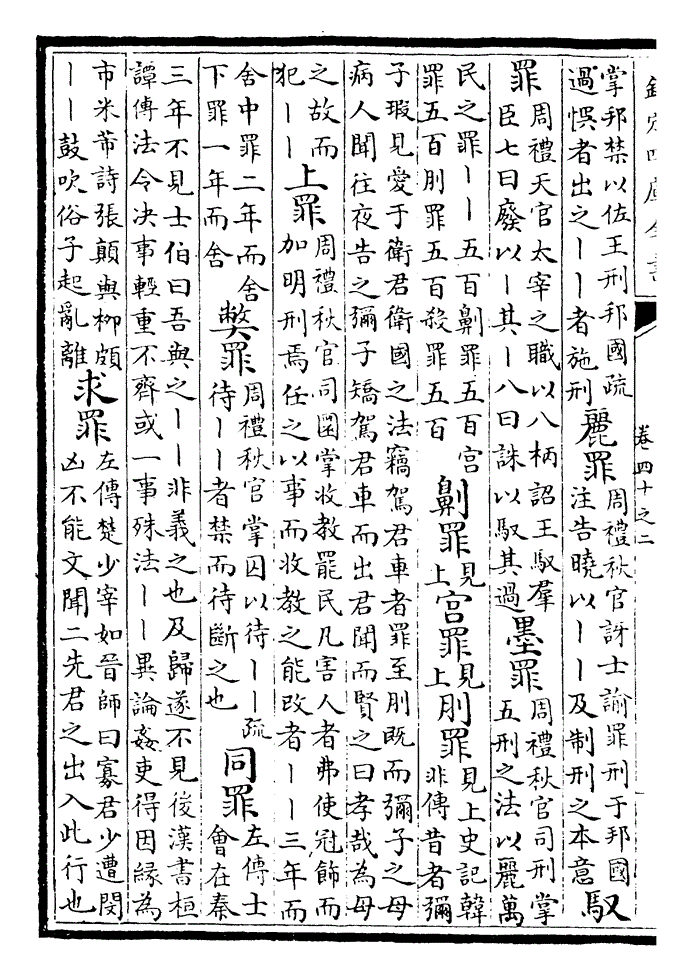 欽定四庫全書
卷四十之二
掌邦禁以佐王刑邦國疏
過悞者出之丨丨者施刑
麗罪
周禮秋官訝士諭罪刑于邦國
注告曉以丨丨及制刑之本意
馭
罪
周禮天官太宰之職以八柄詔王馭羣
臣七曰廢以丨其丨八曰誅以馭其過
墨罪
周禮秋官司刑掌
五刑之法以麗萬
民之罪丨丨五百劓罪五百宫
罪五百刖罪五百殺罪五百
劓罪
見
上
宫罪
見
上
刖罪
見上史記韓
非傳昔者彌
子瑕見愛于衛君衛國之法竊駕君車者罪至刖既而彌子之母
病人聞往夜告之彌子矯駕君車而出君聞而賢之曰孝哉為母
之故而
犯丨丨
上罪
周禮秋官司圜掌收教罷民凡害人者弗使冠飾而
加明刑焉任之以事而收教之能改者丨丨三年而
舍中罪二年而舍
下罪一年而舍
獘罪
周禮秋官掌囚以待丨丨疏
待丨丨者禁而待斷之也
同罪
左傳士
會在秦
三年不見士伯曰吾與之丨丨非義之也及歸遂不見後漢書桓
譚傳法令决事輕重不齊或一事殊法丨丨異論姦吏得因緣為
市米芾詩張顛與柳頗
丨丨鼓吹俗子起亂離
求罪
左傳楚少宰如晉師曰寡君少遭閔
凶不能文聞二先君之出入此行也